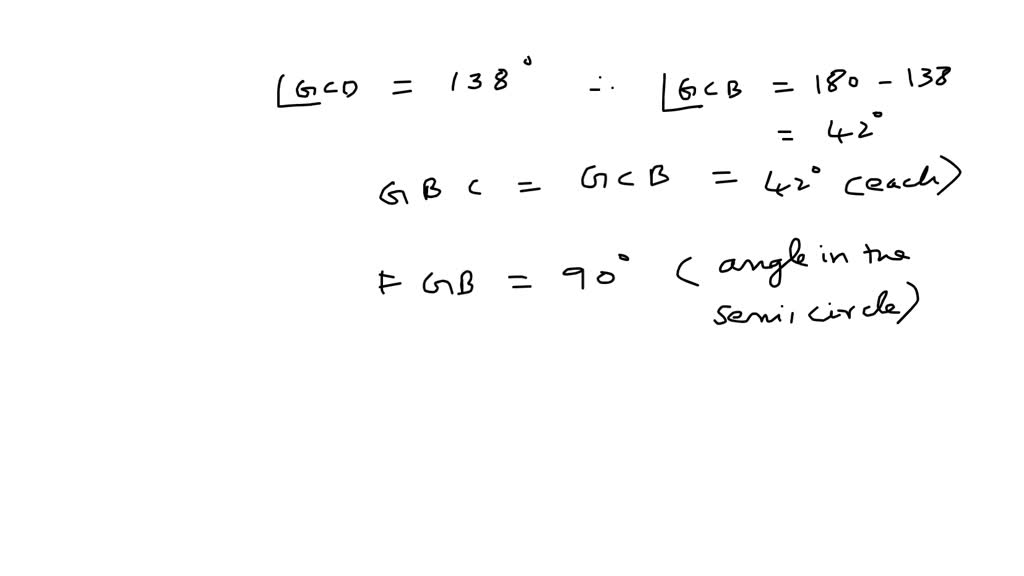 ∠GCD = 138° ∴ ∠GCB = 180 - 138
= 42°
GBC = GCB = 42° (each)
FGB = 90° (angle in the
semi, circle)